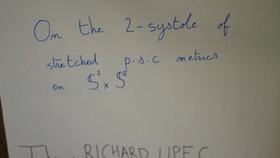 On the 2-systole of
stretched p.s.c metrics
on S² × S²
RICHARD UPEC